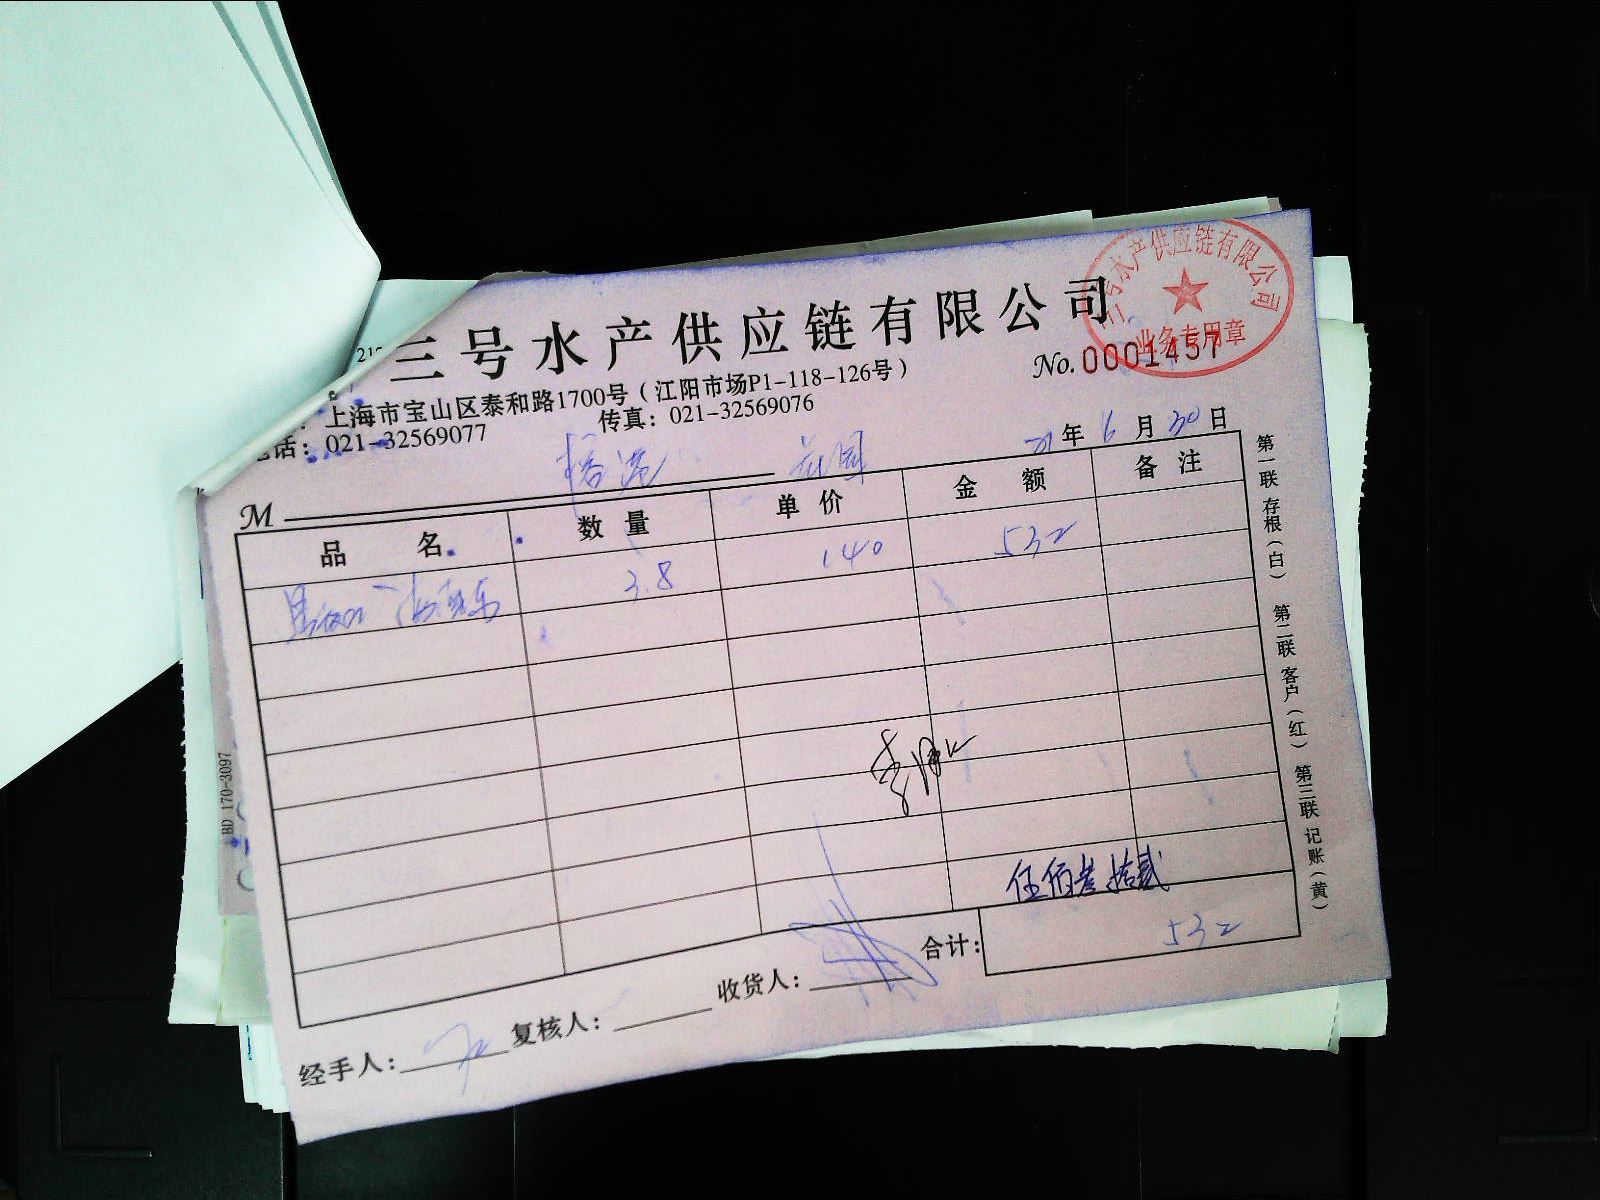 三号水产供应链有限公司
三号水产供应链有限公司
业务专用章
No. 0001457
上海市宝山区泰和路1700号（江阳市场P1-118-126号）
话：021-32569077 传真：021-32569076
21年6月30日
M
品名 数量 单价 金额 备注
3.8 140 532
伍佰叁拾贰
合计： 532
经手人： 复核人： 收货人：
第一联 存根（白） 第二联 客户（红） 第三联 记账（黄）
BD 170-3097